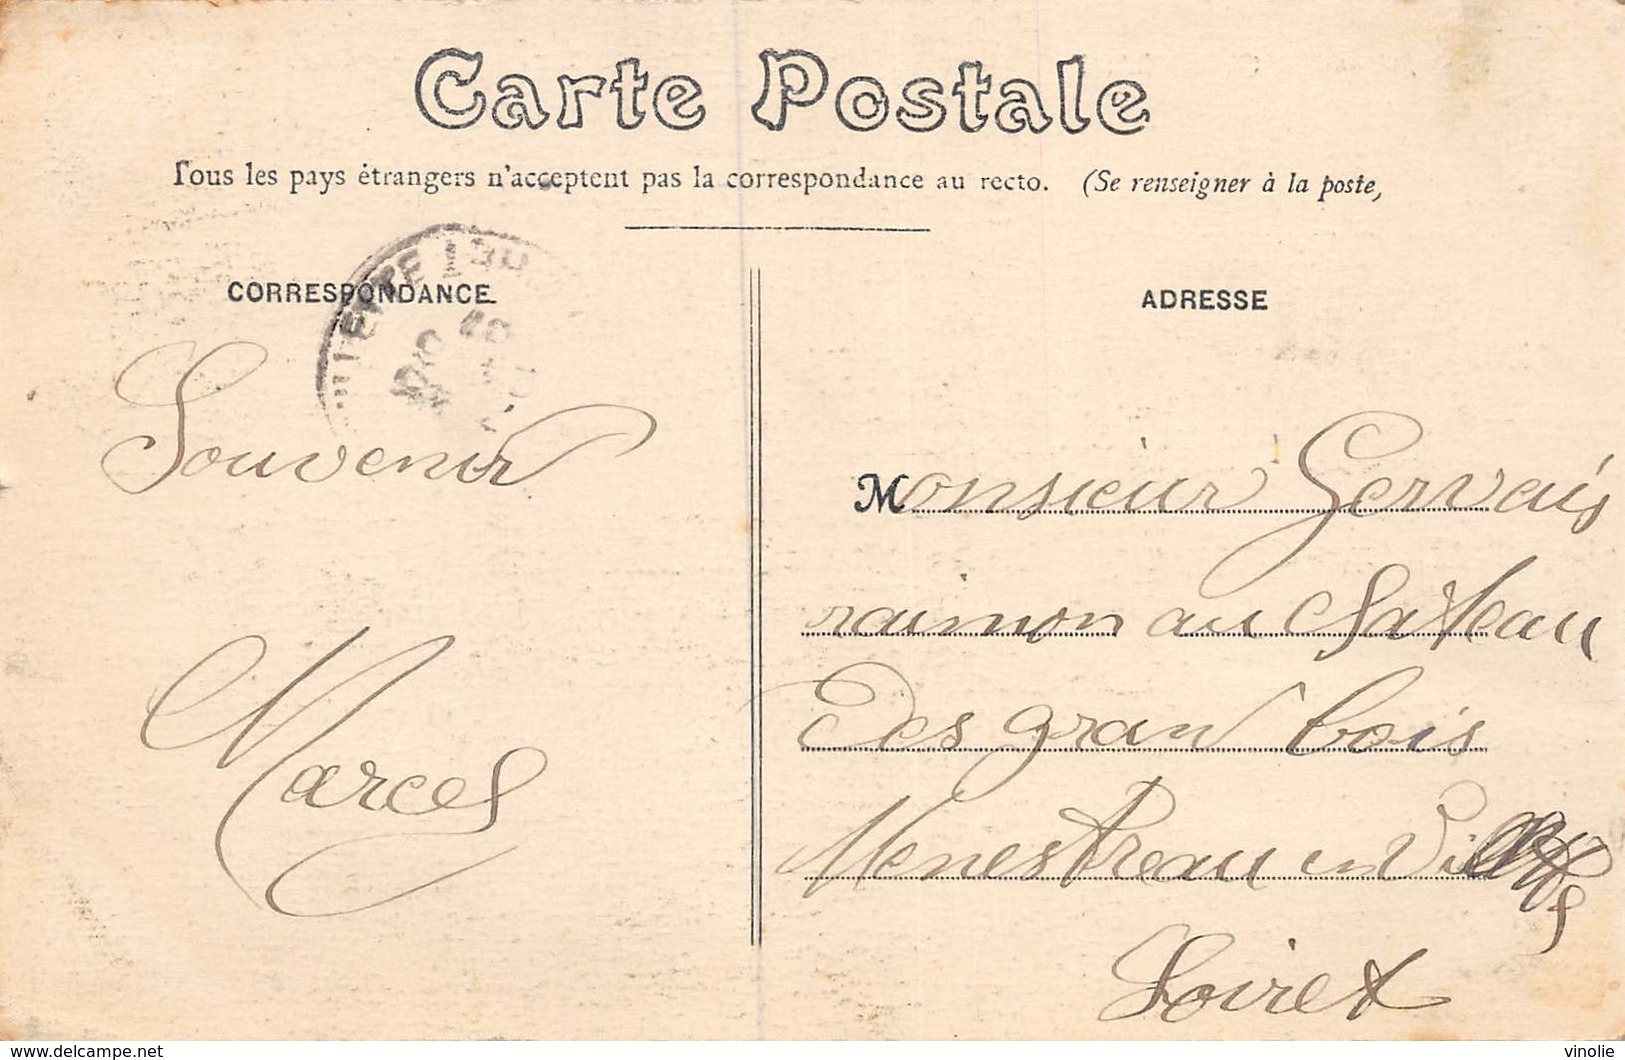 Carte Postale
Tous les pays étrangers n'acceptent pas la correspondance au recto. (Se renseigner à la poste,
CORRESPONDANCE
ADRESSE
Souvenir
Marcel
Monsieur Gervais
raimon au chateau
Des gran bois
Menestreau en
Loiret
www.delcampe.net
vinolie